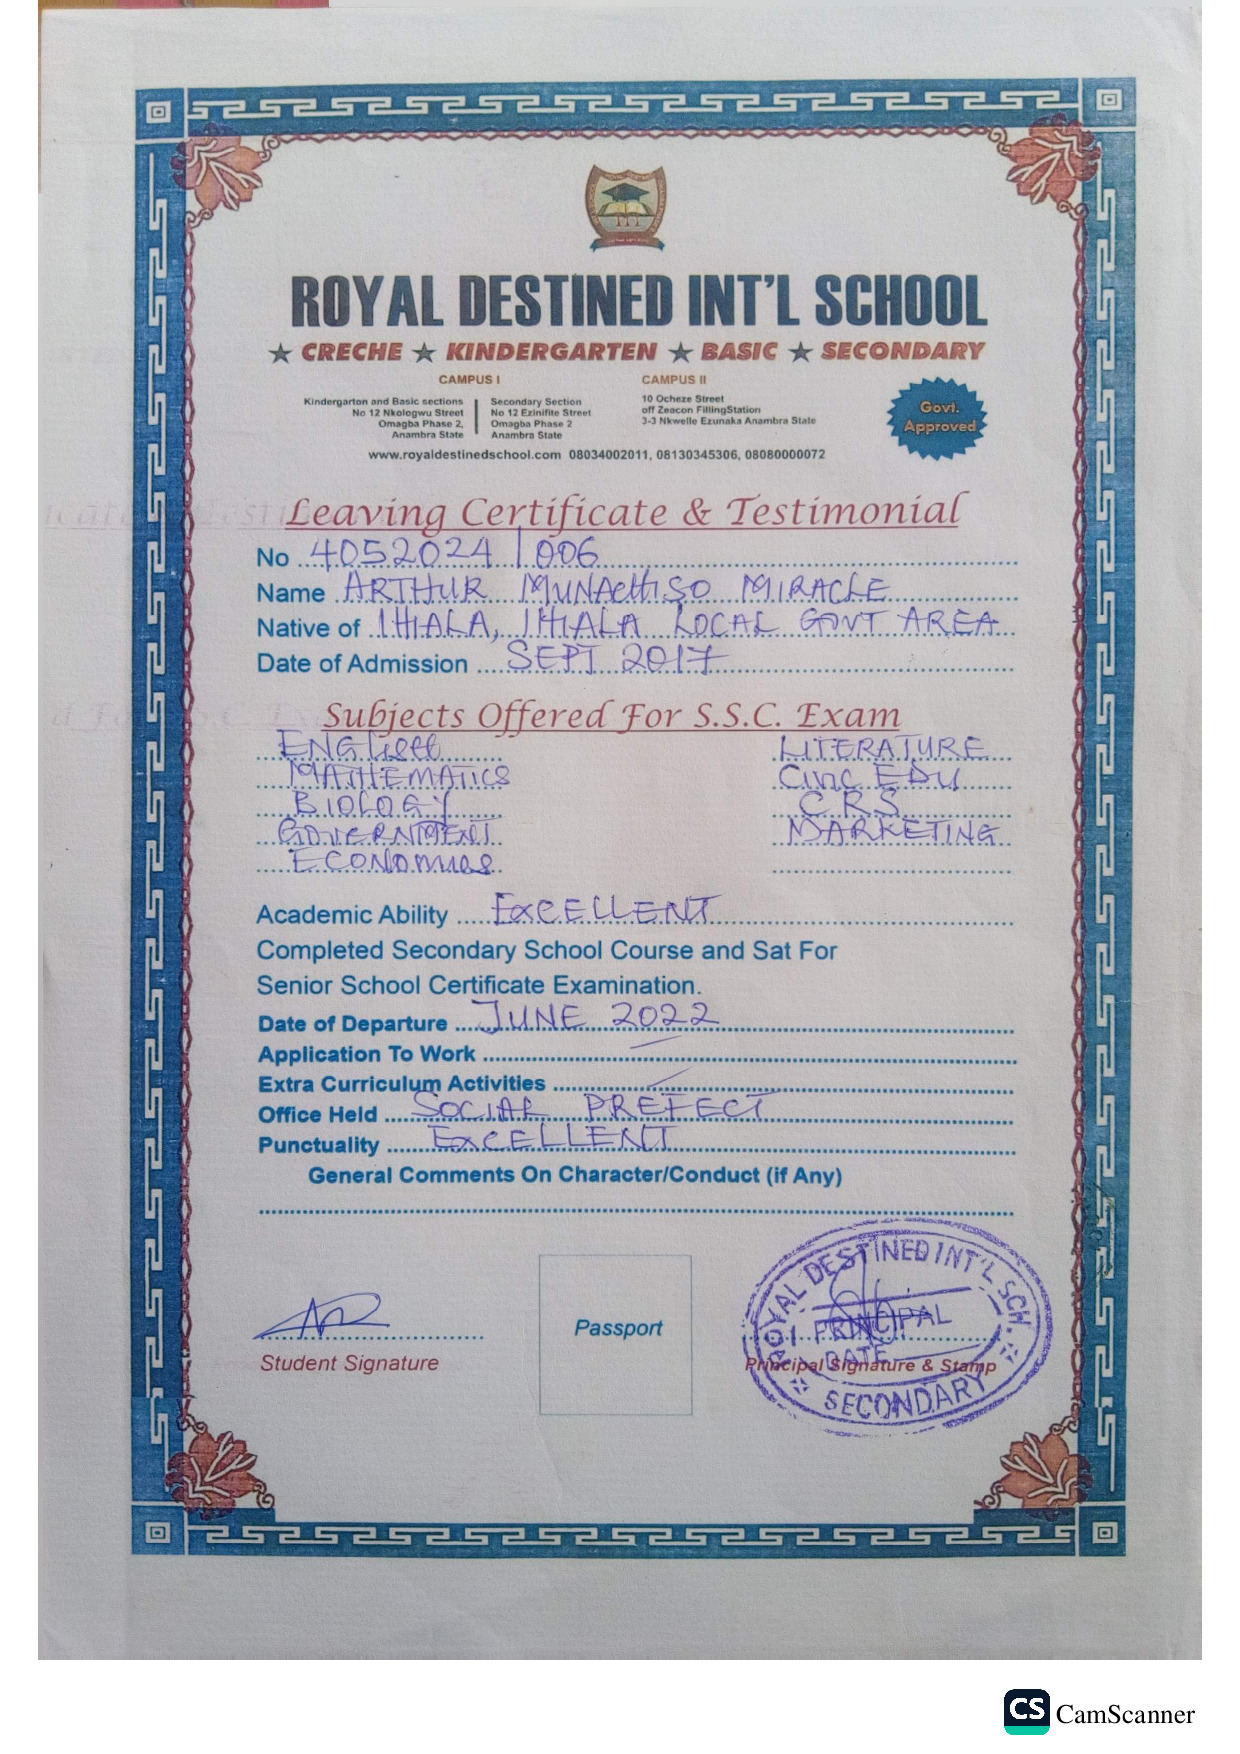 ROYAL DESTINED INT'L SCHOOL
★ CRECHE ★ KINDERGARTEN ★ BASIC ★ SECONDARY
CAMPUS I
Kindergarton and Basic sections
No 12 Nkologwu Street
Omagba Phase 2,
Anambra State
Secondary Section
No 12 Ezinifite Street
Omagba Phase 2
Anambra State
CAMPUS II
10 Ocheze Street
off Zeacon FillingStation
3-3 Nkwelle Ezunaka Anambra State
Govt.
Approved
www.royaldestinedschool.com 08034002011, 08130345306, 08080000072
Leaving Certificate & Testimonial
No 4052024 | 006
Name ARTHUR MUNACHISO MIRACLE
Native of IHIALA, IHIALA LOCAL GOVT AREA
Date of Admission SEPT 2017
Subjects Offered For S.S.C. Exam
ENGLISH
LITERATURE
MATHEMATICS
CIVIC EDU
BIOLOGY
C.R.S
GOVERNMENT
MARKETING
ECONOMICS
Academic Ability EXCELLENT
Completed Secondary School Course and Sat For
Senior School Certificate Examination.
Date of Departure JUNE 2022
Application To Work
Extra Curriculum Activities
Office Held SOCIAL PREFECT
Punctuality EXCELLENT
General Comments On Character/Conduct (if Any)
Student Signature
Passport
ROYAL DESTINED INT'L SCH.
PRINCIPAL
DATE
SECONDARY
Principal Signature & Stamp
CS CamScanner